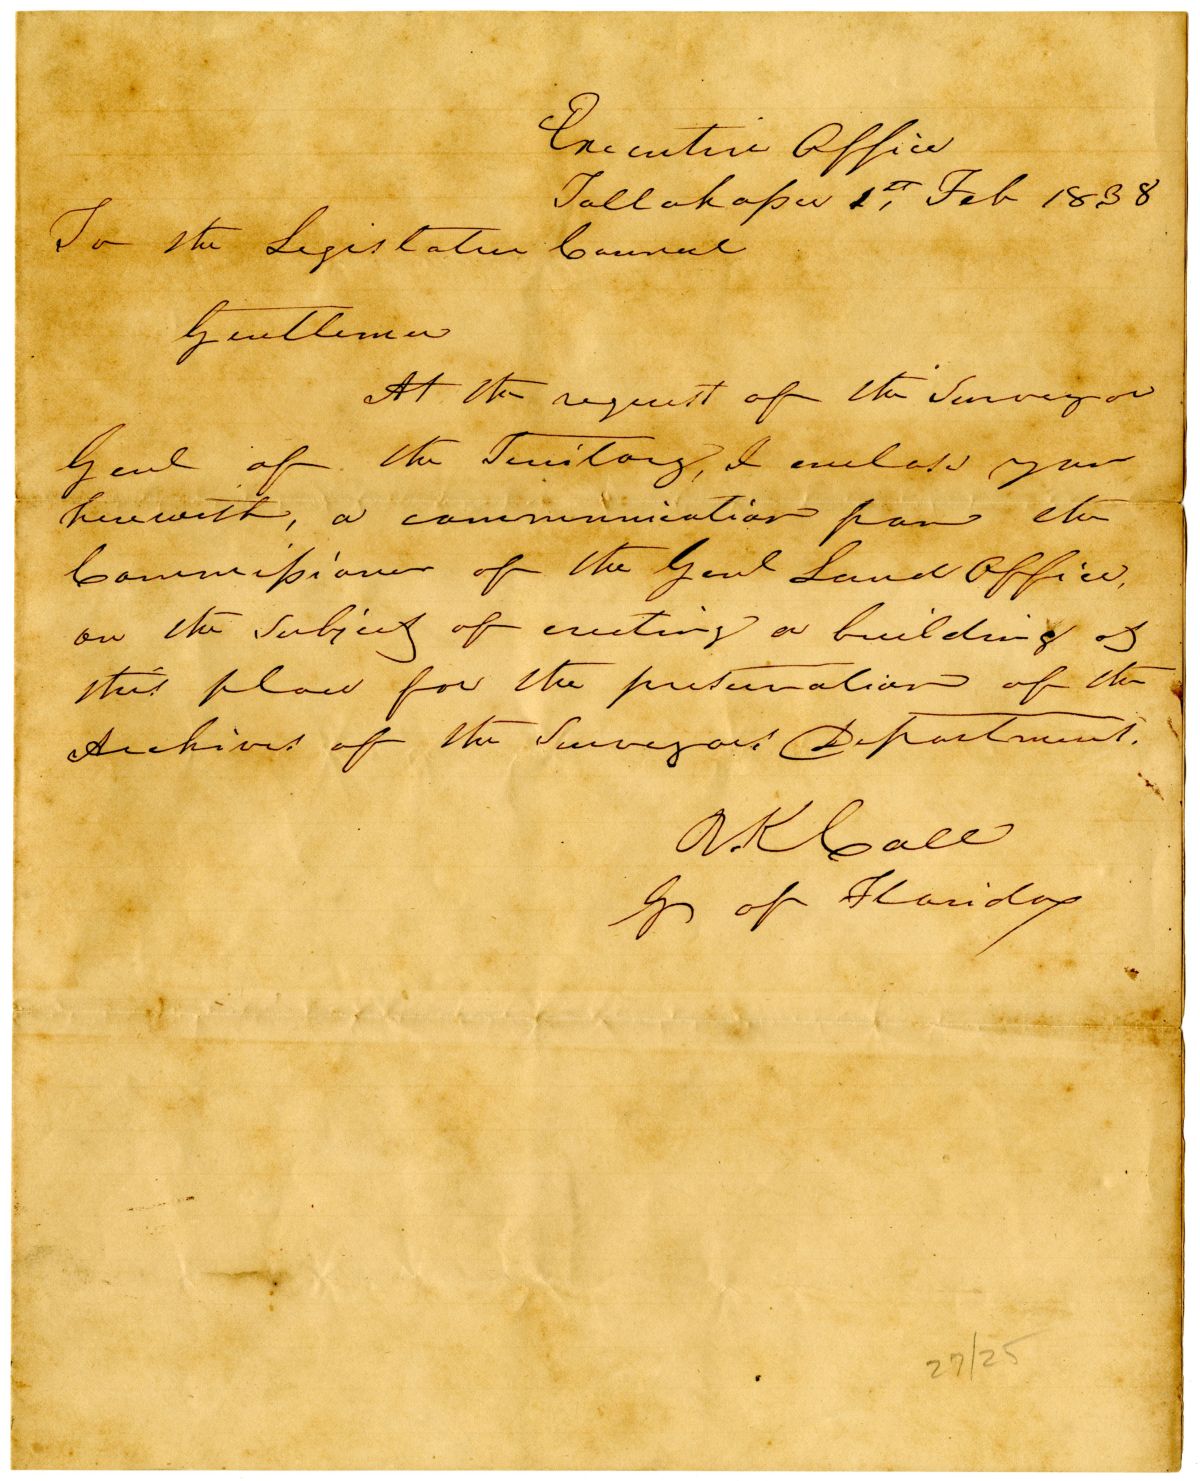 Executive Office
Tallahassee 1st, Feb 1838
To the Legislative Council
Gentlemen
At the request of the Surveyor
Genl of the Territory, I enclose you
herewith, a communication from the
Commissioner of the Genl Land Office,
on the subject of erecting a building at
this place for the preservation of the
Archives of the Surveyors Department.
R. K Call
Gr of Florida
27/25